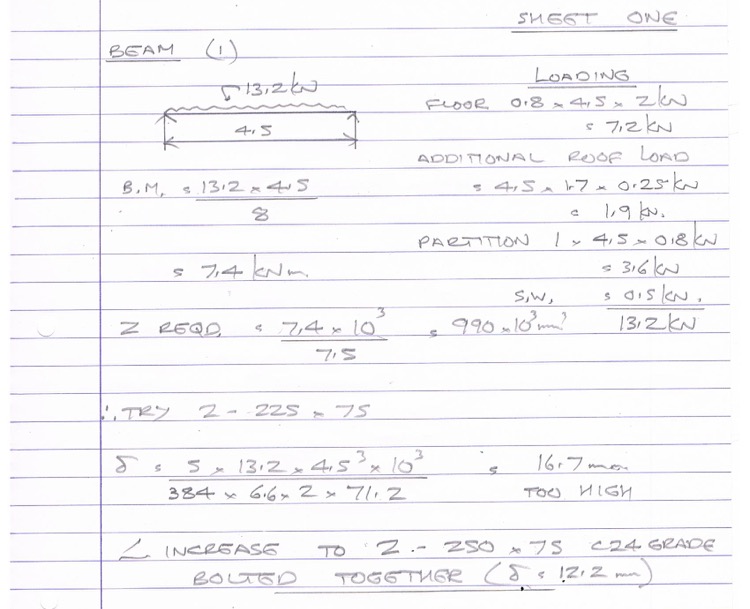 SHEET ONE
BEAM (1)
13.2 kN
4.5
LOADING
FLOOR 0.8 × 4.5 × 2 kN
= 7.2 kN
ADDITIONAL ROOF LOAD
= 4.5 × 1.7 × 0.25 kN
= 1.9 kN.
PARTITION 1 × 4.5 × 0.8 kN
= 3.6 kN
S.W, = 0.5 kN.
13.2 kN
B.M. = 13.2 × 4.5
8
= 7.4 kNm
Z REQD. = 7.4 × 10³ = 990 × 10³ mm³
7.5
∴ TRY 2 - 225 × 75
δ = 5 × 13.2 × 4.5³ × 10³ = 16.7 mm
384 × 6.6 × 2 × 71.2 TOO HIGH
∠ INCREASE TO 2 - 250 × 75 C24 GRADE
BOLTED TOGETHER (δ = 12.2 mm)